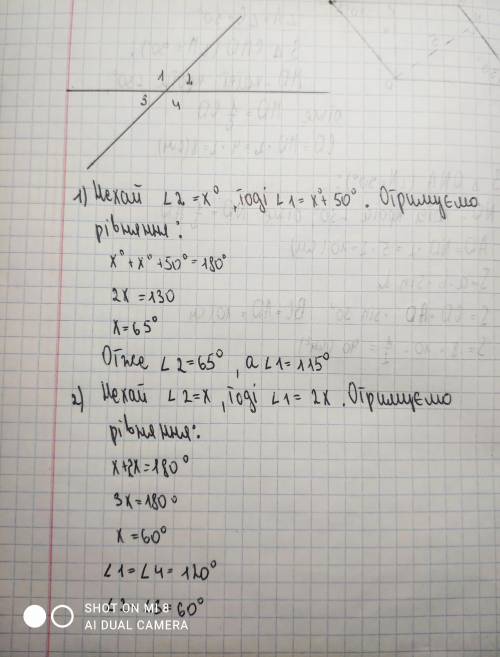 1 2
3 4
1) Нехай ∠2=x°, тоді ∠1=x°+50°. Отримуємо
рівняння:
x°+x°+50°=180°
2x=130
x=65°
Отже ∠2=65°, а ∠1=115°
2) Нехай ∠2=x, тоді ∠1=2x. Отримуємо
рівняння:
x+2x=180°
3x=180°
x=60°
∠1=∠4=120°
=60°
SHOT ON MI 8
AI DUAL CAMERA